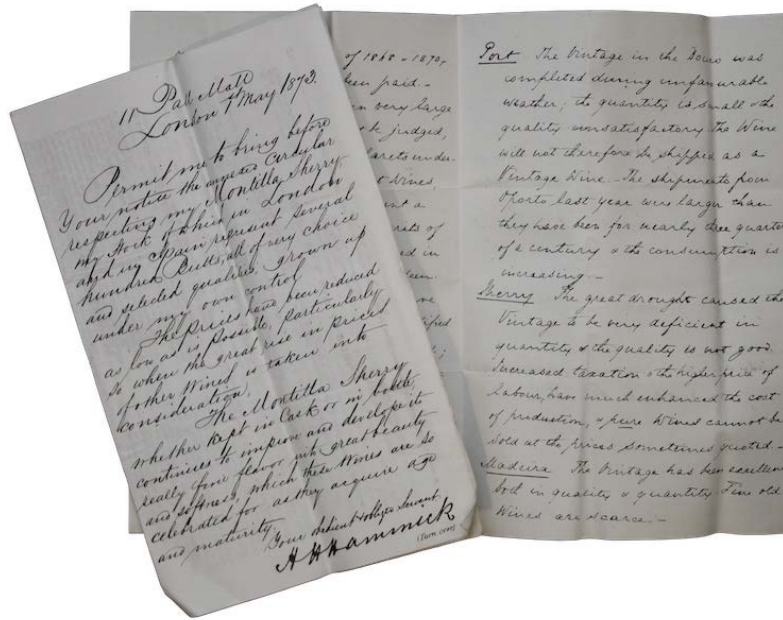 11 Pall Mall
London 1st May 1873.
Permit me to bring before
Your notice the annexed Circular
respecting my Montilla Sherry
my Stock of which in London
and in Spain represent several
hundred Butts, all of very choice
and selected qualities, grown up
under my own control
The prices have been reduced
as low as is possible, particularly
so when the great rise in prices
of other Wines is taken into
consideration,
The Montilla Sherry
whether Kept in Cask or in bottle,
continues to improve and develope its
really fine flavor with great beauty
and softness, which these Wines are so
celebrated for as they acquire age
and maturity.
Your obedient & obliged Servant
H H Hammick
(Turn over)
of 1868 - 1870,
been paid. -
very large
be judged,
Clarets under-
Wines,
a
of
in
Port The Vintage in the Douro was
completed during unfavourable
weather; the quantity is small & the
quality unsatisfactory. The Wine
will not therefore be shipped as a
Vintage Wine. - The shipments from
Oporto last year were larger than
they have been for nearly three quarters
of a century & the consumption is
increasing. -
Sherry The great drought caused the
Vintage to be very deficient in
quantity & the quality is not good.
Increased taxation & the higher price of
Labour, have much enhanced the cost
of production, & pure Wines cannot be
sold at the prices sometimes quoted. -
Madeira The Vintage has been excellent
both in quality & quantity. Fine old
Wines are scarce. -